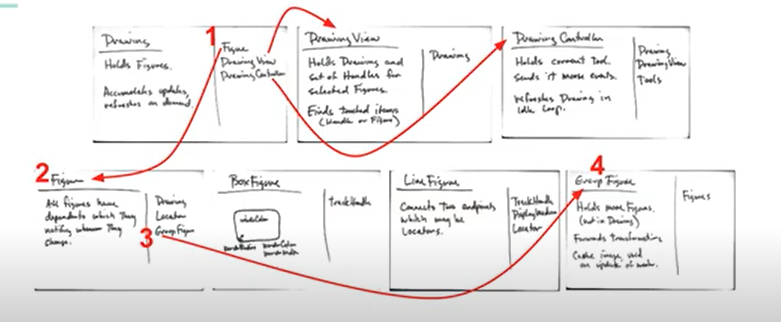 Drawing
Holds Figures.
Accumulates updates,
refreshes on demand.
1
Figure
Drawing View
Drawing Controller
Drawing View
Holds Drawing and
set of Handles for
selected Figures.
Finds touched items
(Handle or Figure)
Drawing
Drawing Controller
Holds current Tool.
Sends it mouse events.
refreshes Drawing in
Idle loop.
Drawing
Drawing View
Tools
2
Figure
All figures have
dependents which they
notify whenever they
change.
Drawing
Locator
Group Figure
3
Box Figure
TrackHandle
Line Figure
Connects two endpoints
which may be
Locators.
TrackHandle
Locator
4
Group Figure
Holds more Figures.
(not in Drawing)
Forwards transformations
Cache image used
on update of
Figures